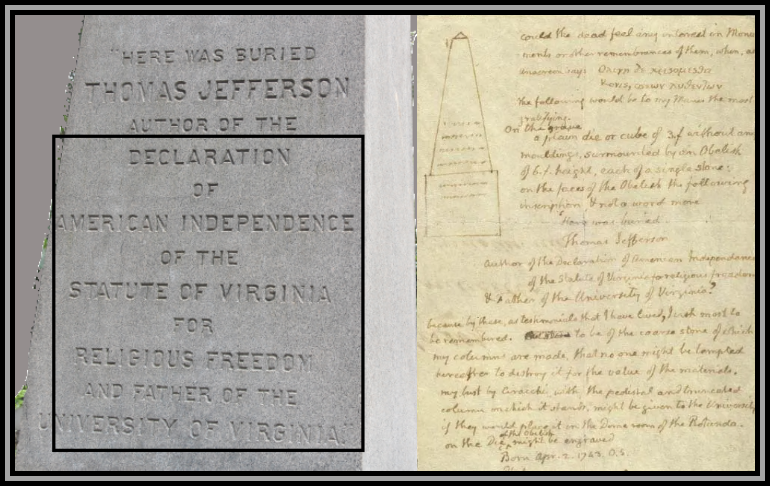 "HERE WAS BURIED
THOMAS JEFFERSON
AUTHOR OF THE
DECLARATION
OF
AMERICAN INDEPENDENCE
OF THE
STATUTE OF VIRGINIA
FOR
RELIGIOUS FREEDOM
AND FATHER OF THE
UNIVERSITY OF VIRGINIA."
could the dead feel any interest in Monu
ments or other remembrances of them, when, as
Anacreon says
the following would be to my Manes the most
gratifying.
On the grave
a plain die or cube of 3.f without any
mouldings, surmounted by an Obelisk
of 6.f. height, each of a single stone:
on the faces of the Obelisk the following
inscription, & not a word more
Here was buried
Thomas Jefferson
Author of the Declaration of American Independance
of the Statute of Virginia for religious freedom
& Father of the University of Virginia.
because by these, as testimonials that I have lived, I wish most to
be remembered. to be of the coarse stone of which
my columns are made, that no one might be tempted
hereafter to destroy it for the value of the materials.
my bust by Ciracchi, with the pedestal and truncated
column on which it stands, might be given to the University
if they would place it in the Dome room of the Rotunda.
on the Die of the Obelisk might be engraved
Born Apr. 2. 1743. O.S.